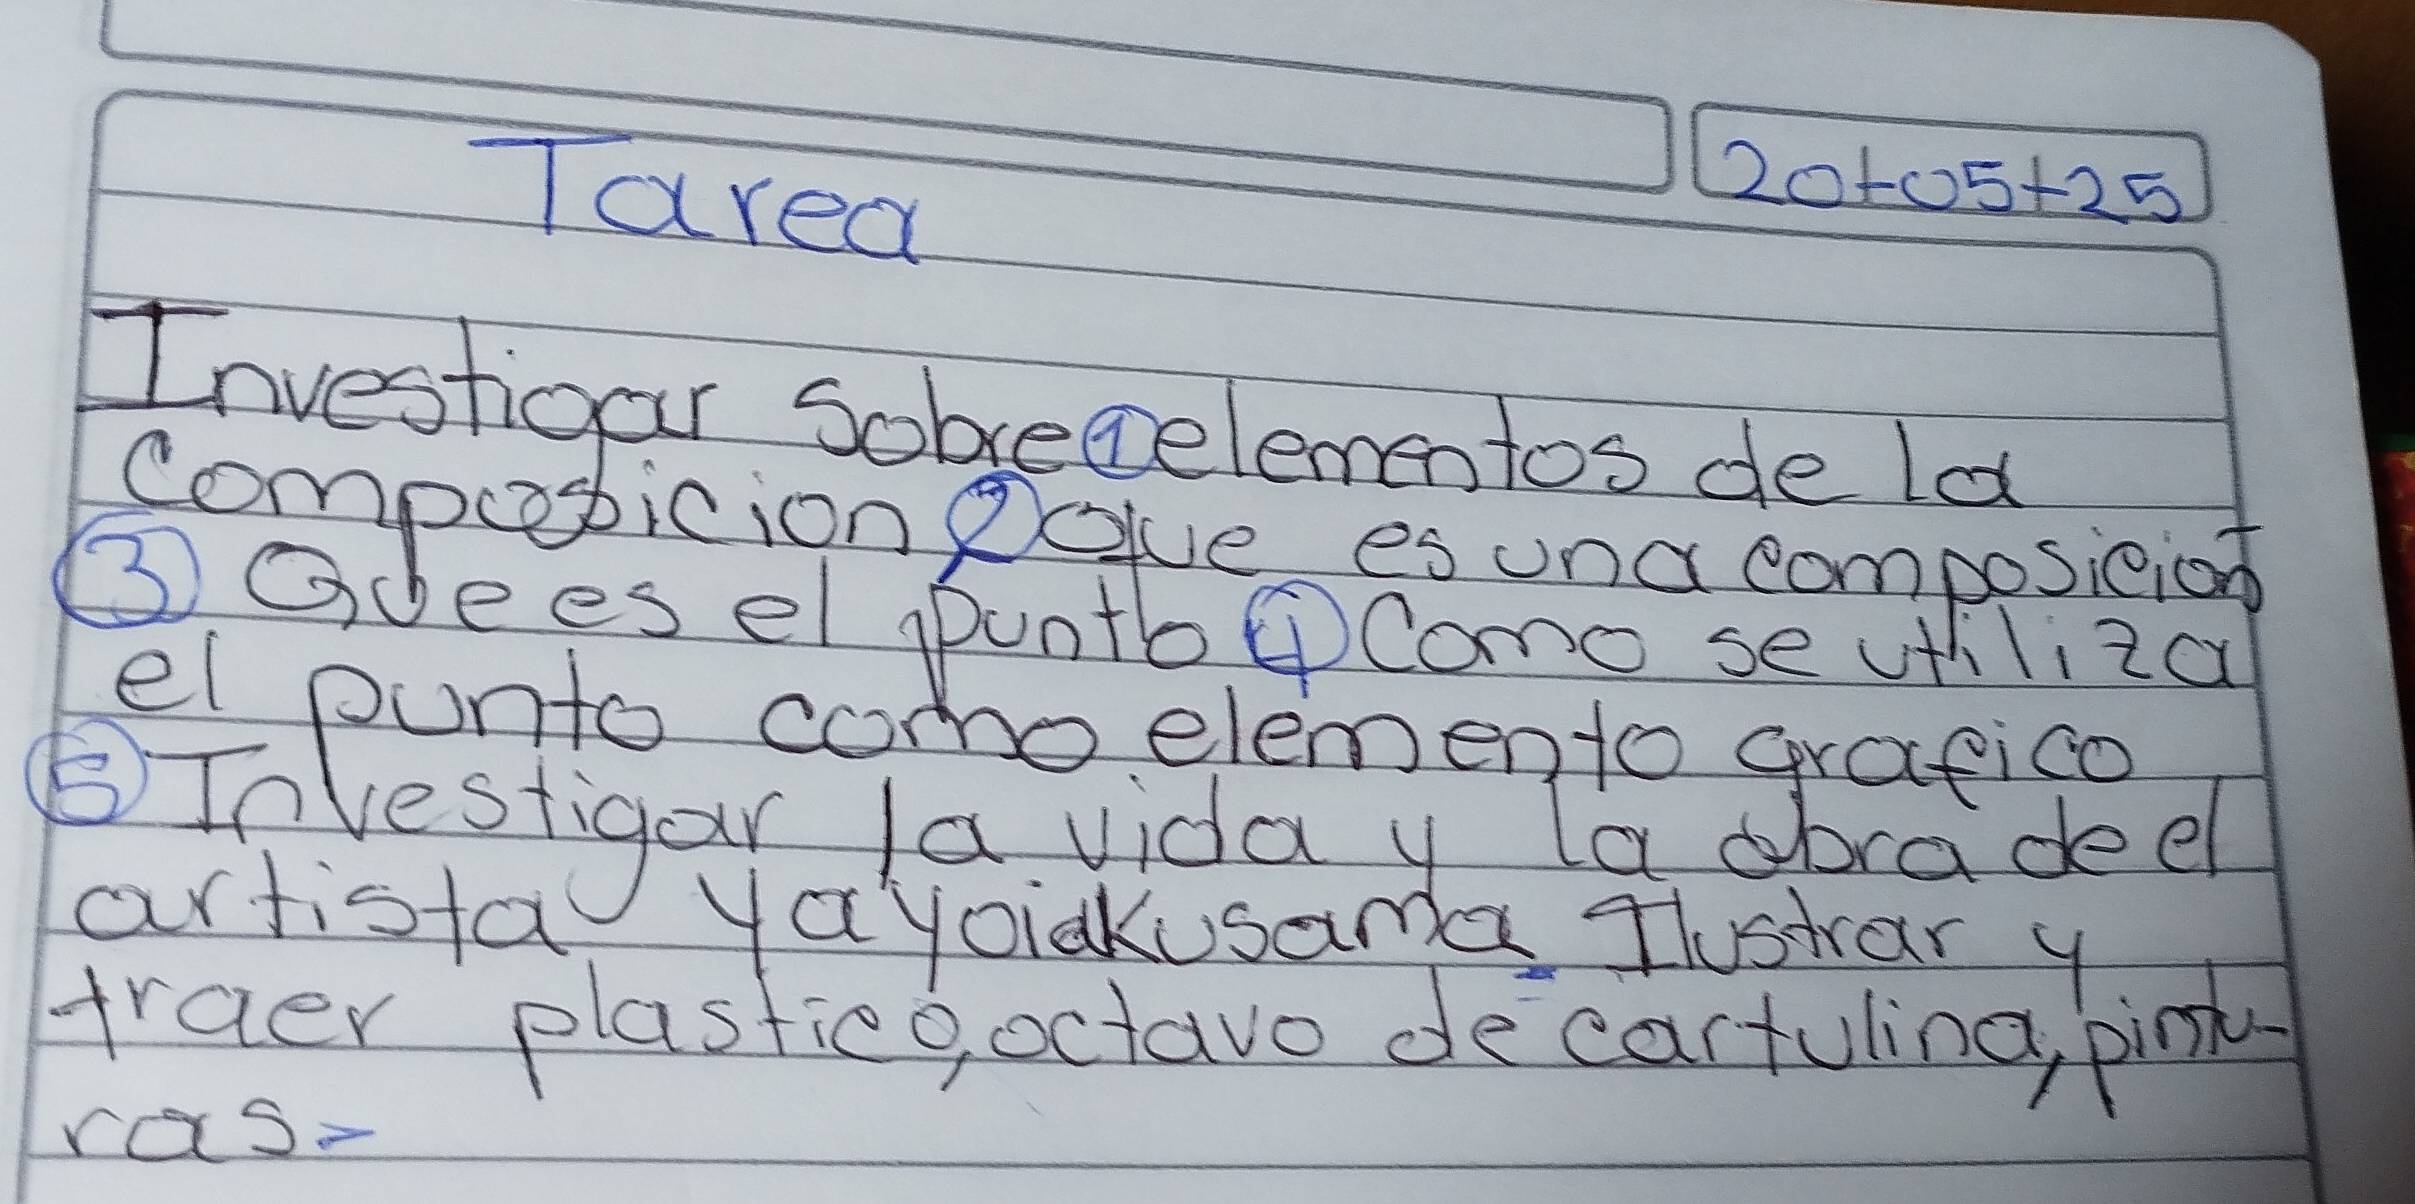 Tarea
20+05+25
Investigar Sobre ① elementos de la
Composicion ② Que es una composicion
③ Que es el punto ④ Como se utiliza
el punto como elemento grafico
⑤ Investigar la vida y la obra de el
artista yayoiakusama Ilustrar y
traer plastico, octavo de cartulina, pintu-
ras-